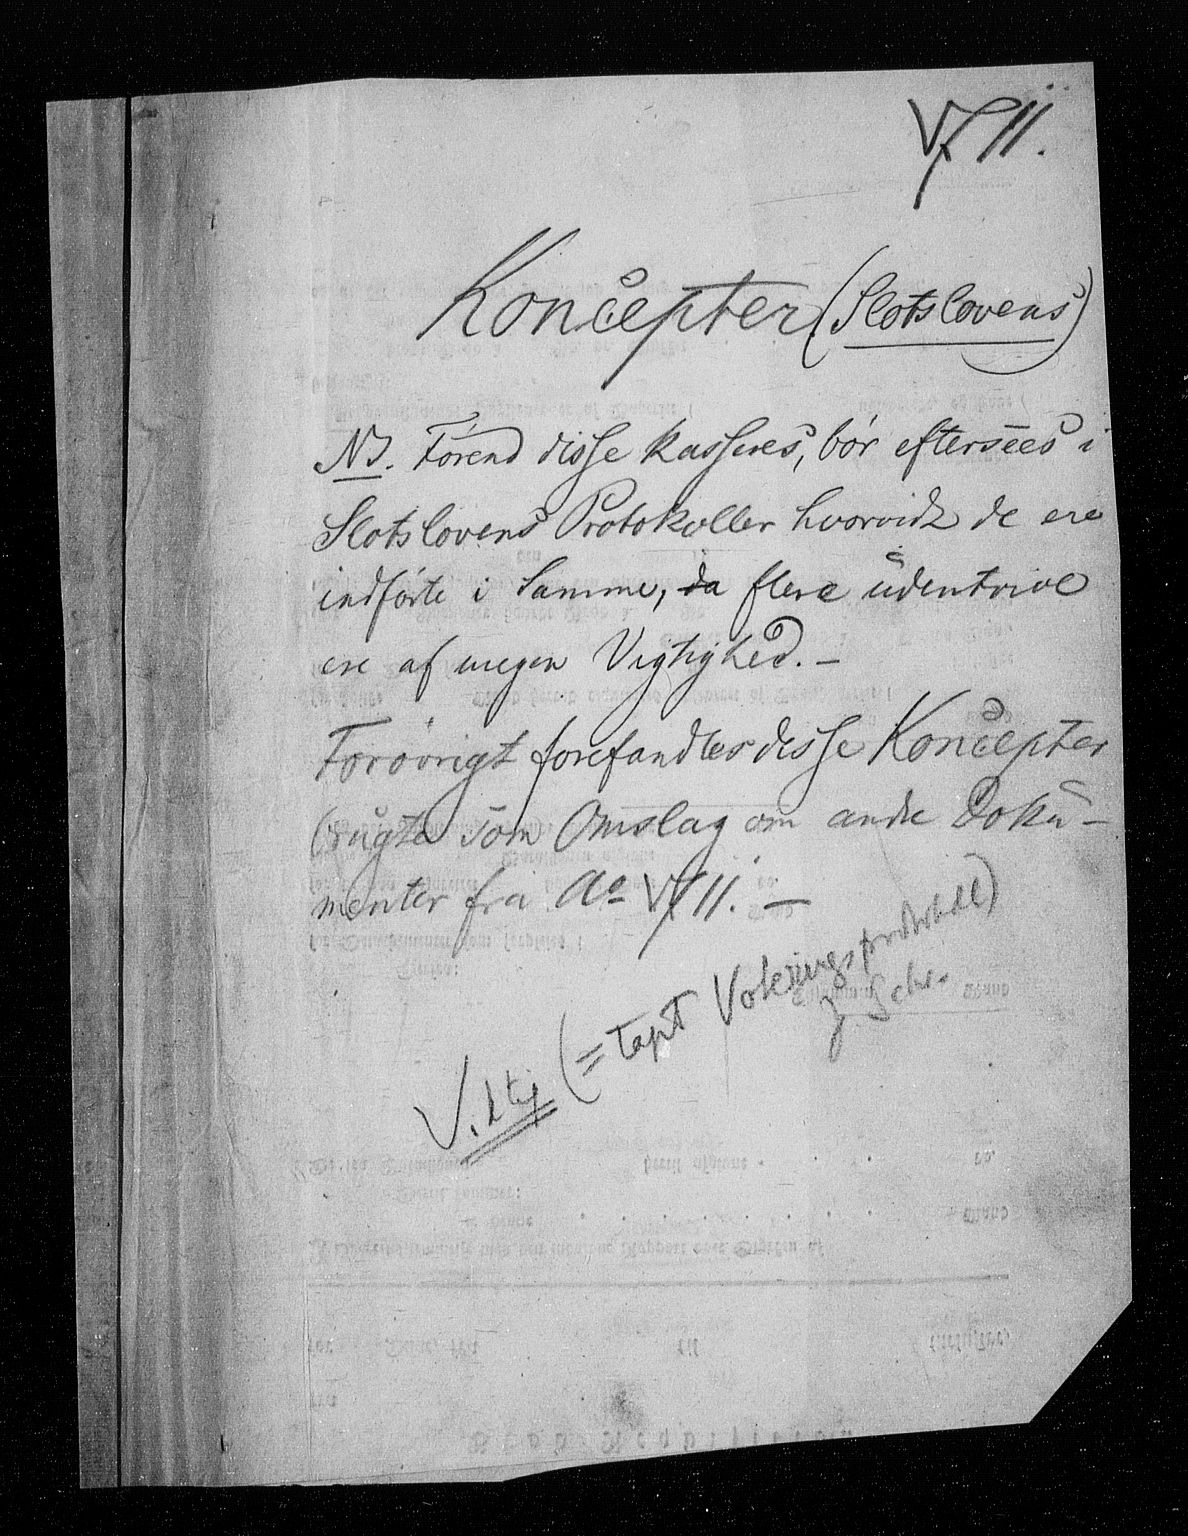 1711.
Koncepter (Slotslovens)
NB. Førend disse kasseres, bør eftersees i
Slotslovens Protokoller hvorvidt de ere
indførte i Samme, da flere udentvivl
ere af megen Vigtighed. –
Forøvrigt forefandtes disse Koncepter
brugte som Omslag om andre Doku-
menter fra Ao 1711. –
Viktig (= tapt Voteringsprotokoll)